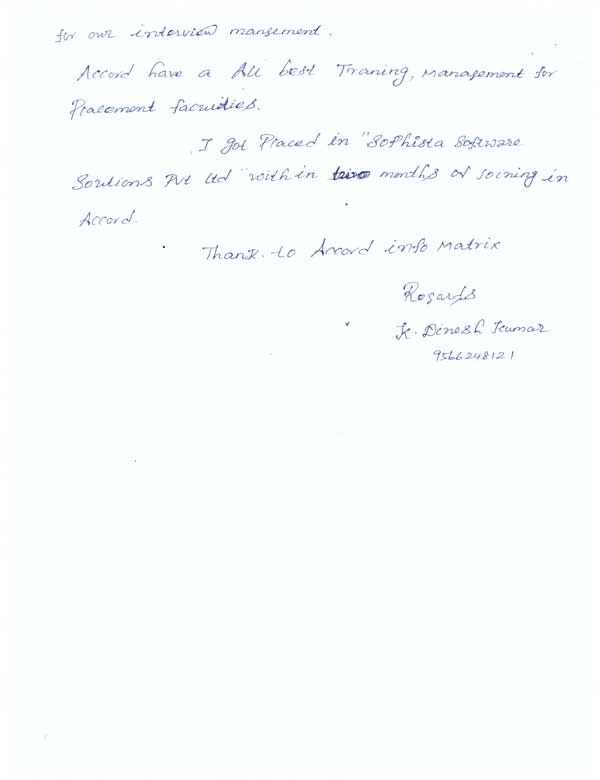 for our interview mansement.
Accord have a All best Traning, Management for
Placement facuities.
I got Placed in "Sophista Software
Soutions Pvt Ltd" with in two months of Joining in
Accord.
Thank to Accord info Matrix
Regards
K. Dinesh Kumar
9566248121